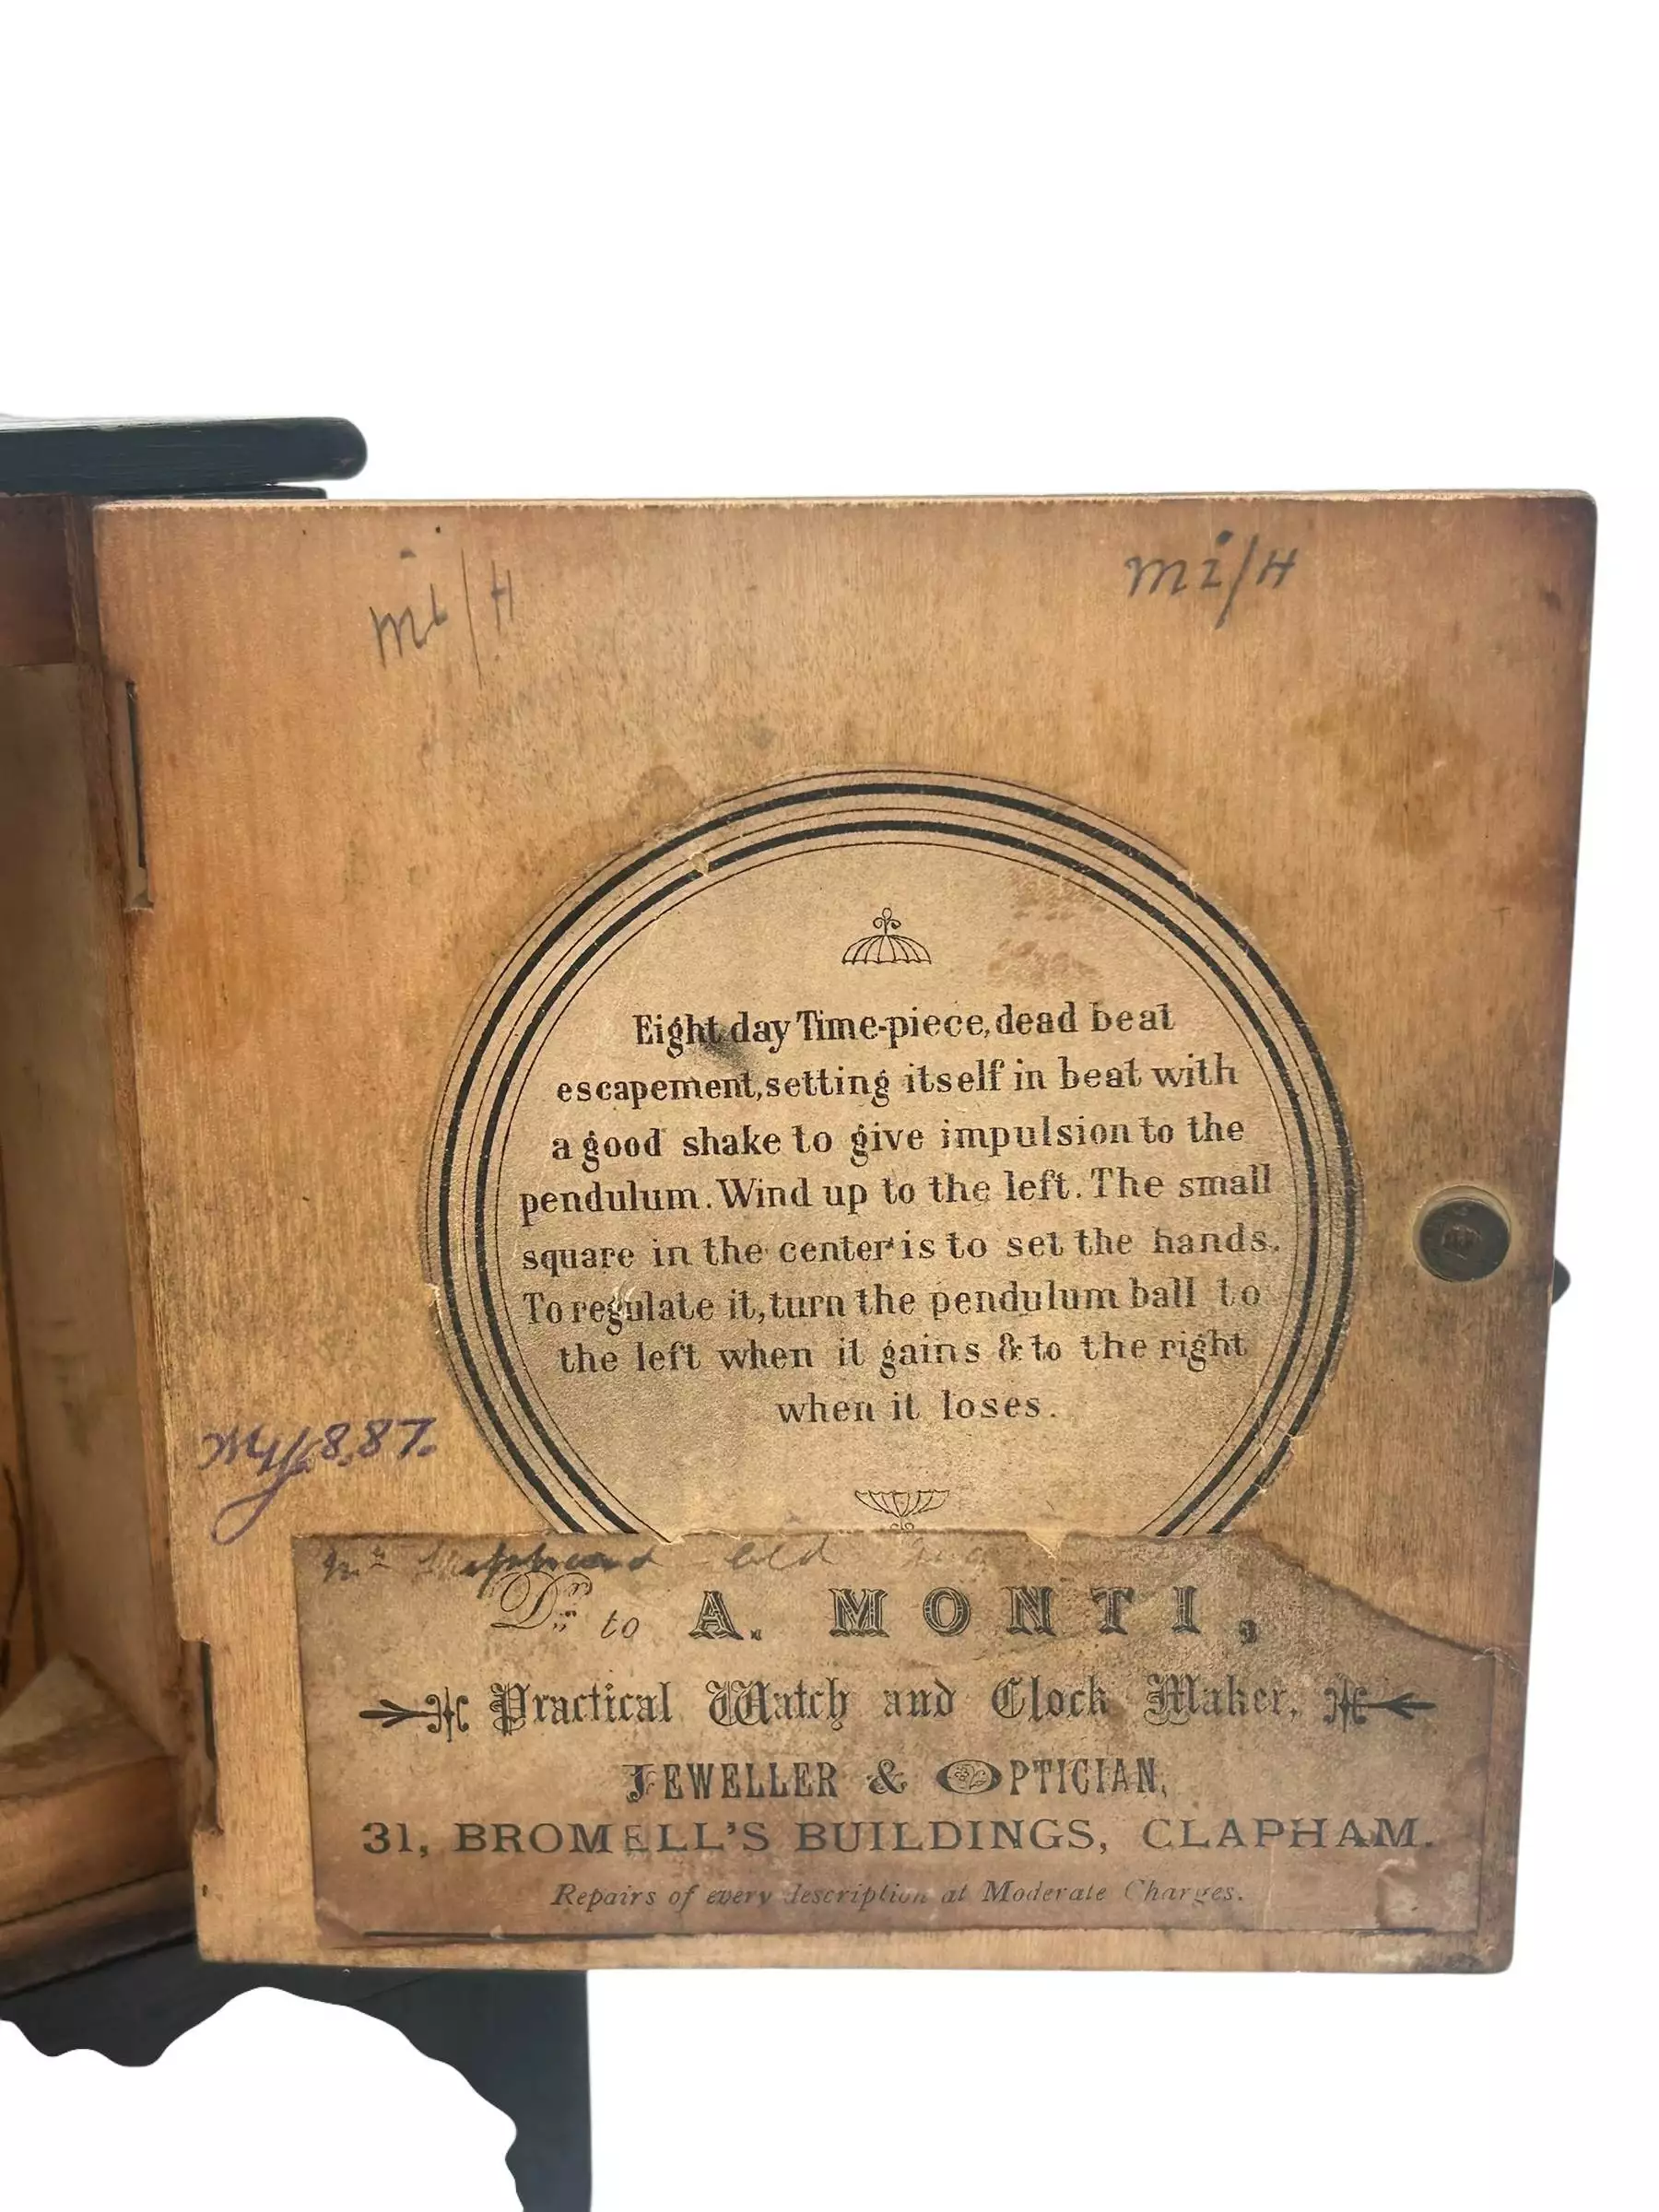 mi/H
mi/H
Eight day Time-piece, dead beat
escapement, setting itself in beat with
a good shake to give impulsion to the
pendulum. Wind up to the left. The small
square in the center is to set the hands.
To regulate it, turn the pendulum ball to
the left when it gains & to the right
when it loses.
Dr. to A. MONTI,
Practical Watch and Clock Maker,
JEWELLER & OPTICIAN,
31, BROMELL'S BUILDINGS, CLAPHAM.
Repairs of every description at Moderate Charges.